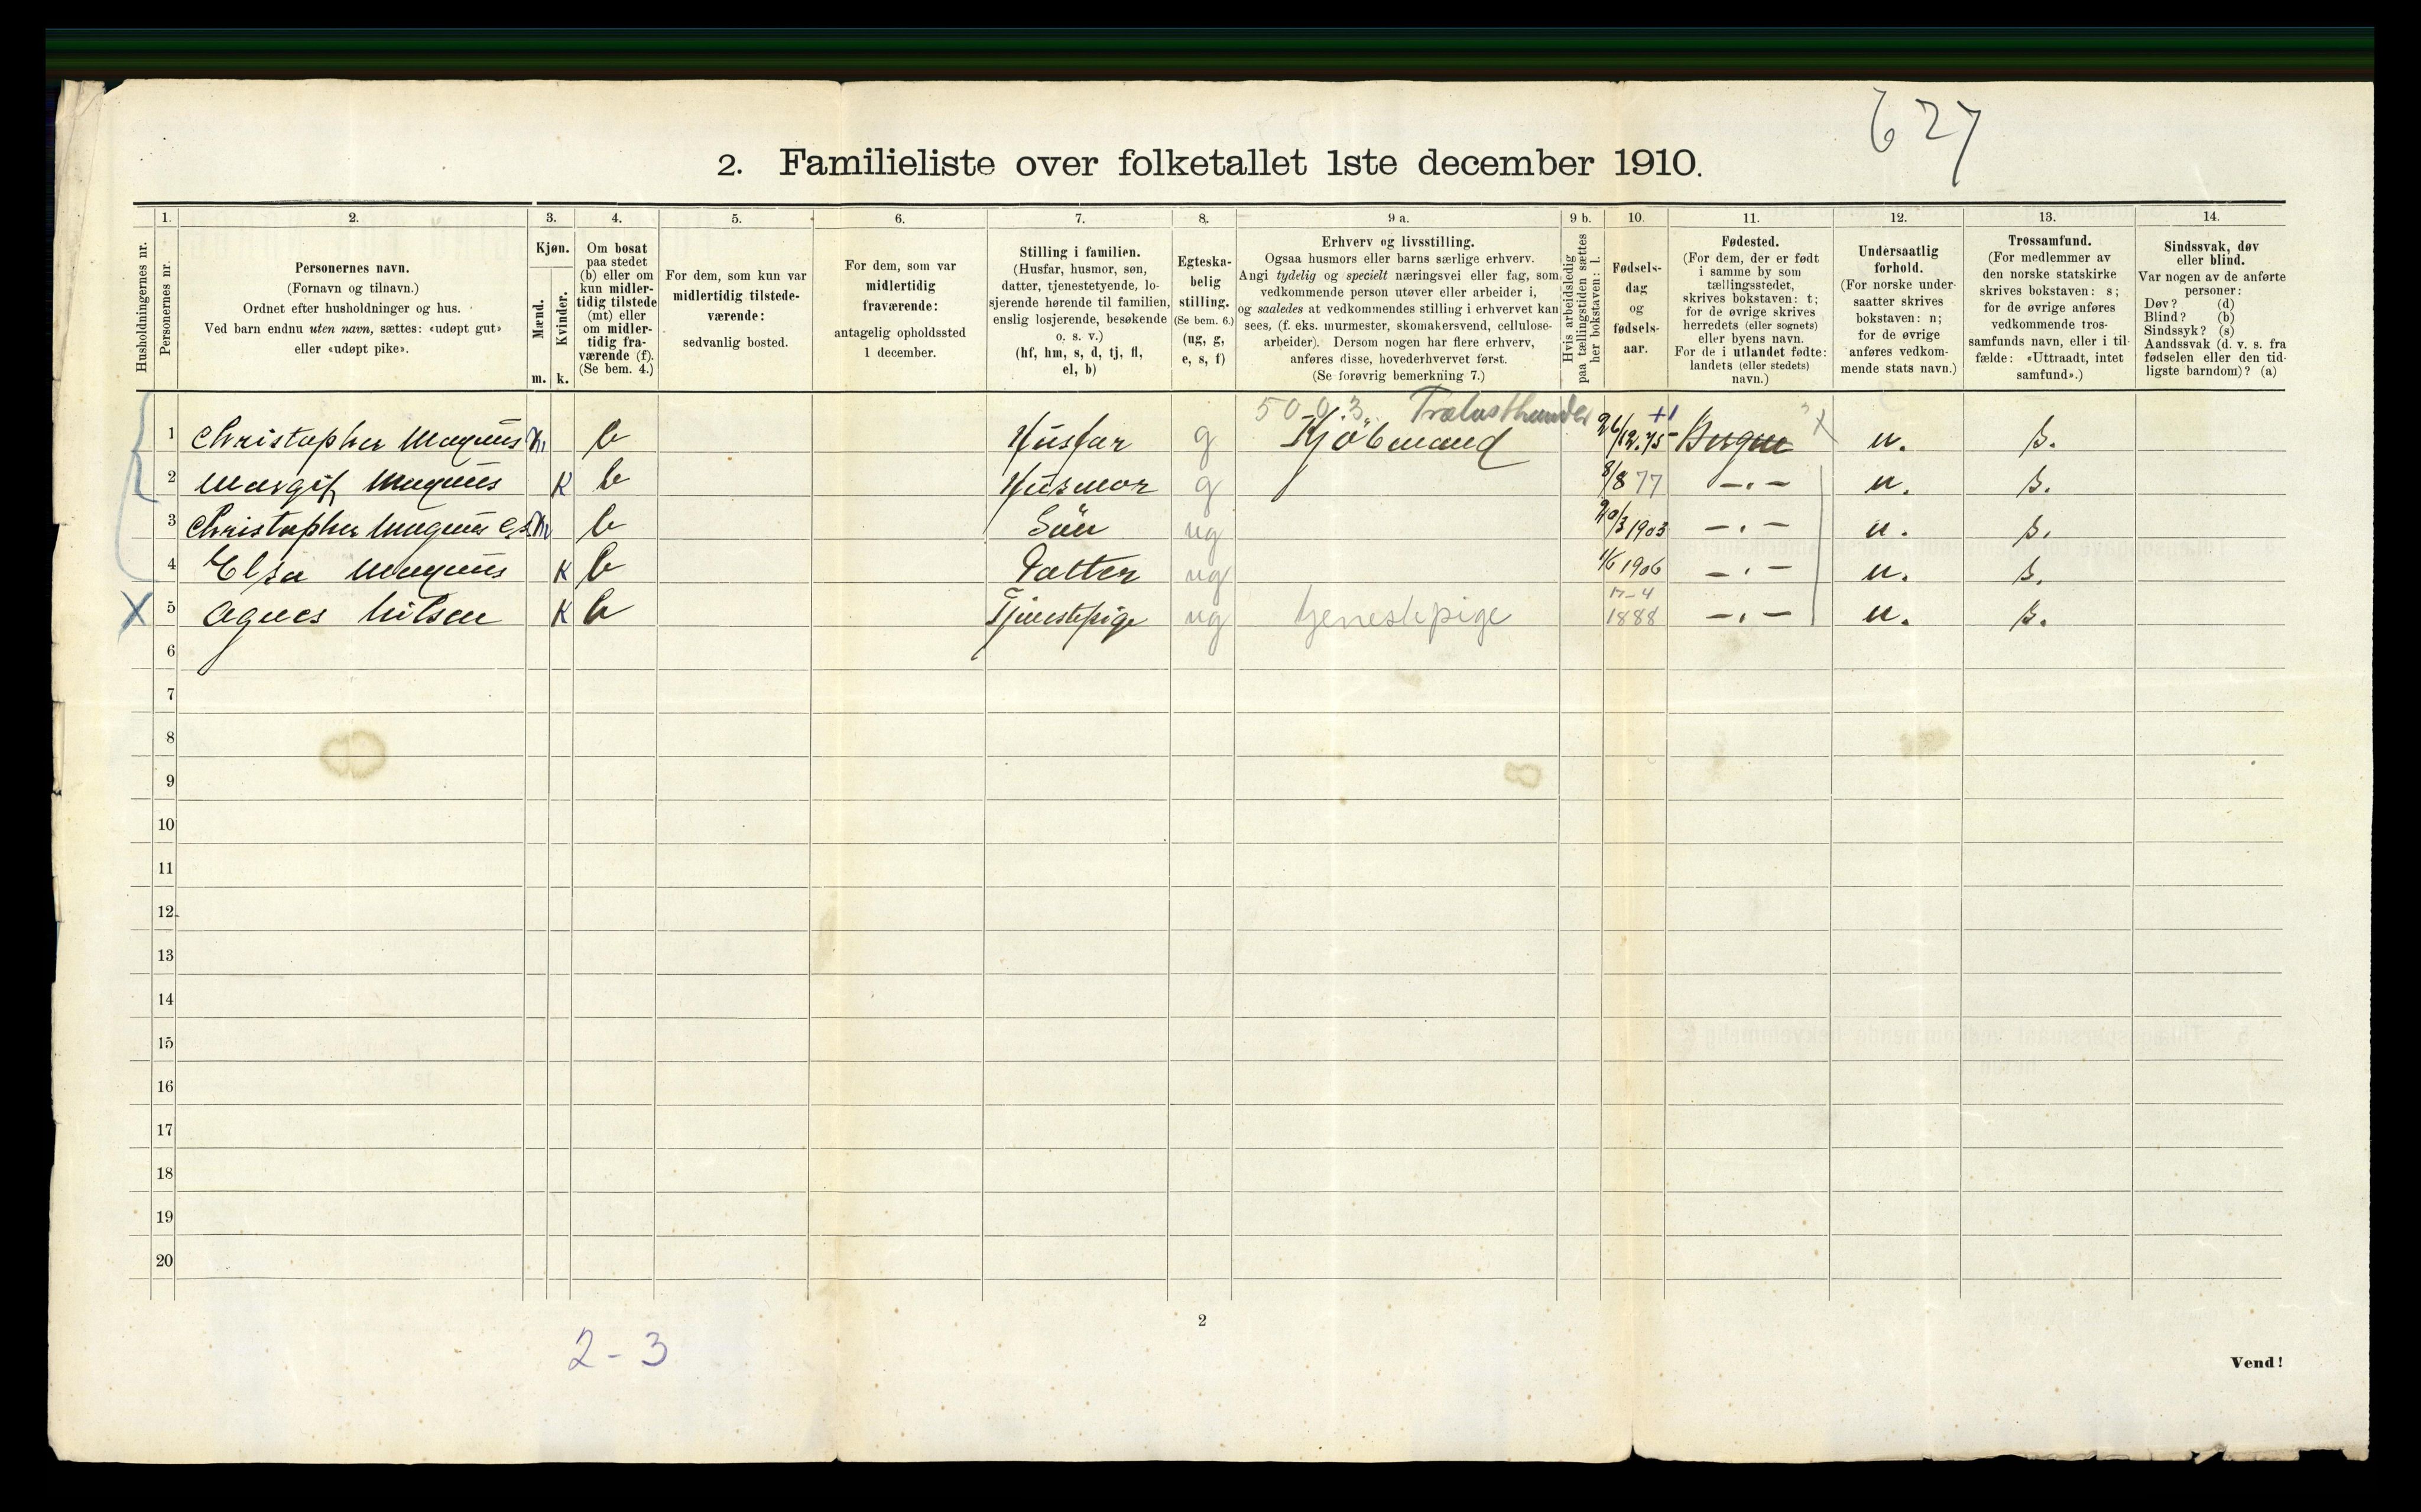 627
2. Familieliste over folketallet 1ste december 1910.
1. 2. 3. 4. 5. 6. 7. 8. 9 a. 9 b. 10. 11. 12. 13. 14.
Husholdningernes nr.
Personernes nr.
Personernes navn.
(Fornavn og tilnavn.)
Ordnet efter husholdninger og hus.
Ved barn endnu uten navn, sættes: «udøpt gut»
eller «udøpt pike».
Kjøn.
Mænd.
Kvinder.
m. k.
Om bosat
paa stedet
(b) eller om
kun midler-
tidig tilstede
(mt) eller
om midler-
tidig fra-
værende (f).
(Se bem. 4.)
For dem, som kun var
midlertidig tilstede-
værende:
sedvanlig bosted.
For dem, som var
midlertidig
fraværende:
antagelig opholdssted
1 december.
Stilling i familien.
(Husfar, husmor, søn,
datter, tjenestetyende, lo-
sjerende hørende til familien,
enslig losjerende, besøkende
o. s. v.)
(hf, hm, s, d, tj, fl,
el, b)
Egteska-
belig
stilling.
(Se bem. 6.)
(ug, g,
e, s, f)
Erhverv og livsstilling.
Ogsaa husmors eller barns særlige erhverv.
Angi tydelig og specielt næringsvei eller fag, som
vedkommende person utøver eller arbeider i,
og saaledes at vedkommendes stilling i erhvervet kan
sees, (f. eks. murmester, skomakersvend, cellulose-
arbeider). Dersom nogen har flere erhverv,
anføres disse, hovederhvervet først.
(Se forøvrig bemerkning 7.)
Hvis arbeidsledig
paa tællingstiden sættes
her bokstaven: l.
Fødsels-
dag
og
fødsels-
aar.
Fødested.
(For dem, der er født
i samme by som
tællingsstedet,
skrives bokstaven: t;
for de øvrige skrives
herredets (eller sognets)
eller byens navn.
For de i utlandet fødte:
landets (eller stedets)
navn.)
Undersaatlig
forhold.
(For norske under-
saatter skrives
bokstaven: n;
for de øvrige
anføres vedkom-
mende stats navn.)
Trossamfund.
(For medlemmer av
den norske statskirke
skrives bokstaven: s;
for de øvrige anføres
vedkommende tros-
samfunds navn, eller i til-
fælde: «Uttraadt, intet
samfund».)
Sindssvak, døv
eller blind.
Var nogen av de anførte
personer:
Døv? (d)
Blind? (b)
Sindssyk? (s)
Aandssvak (d. v. s. fra
fødselen eller den tid-
ligste barndom)? (a)
5003 Trælasthandler
1 Christopher Magnus m b Husfar g Kjöbmand 26/12.75 Bergen n. s.
2 Margit Magnus K b Husmor g 8/8 77 —"— n. s.
3 Christopher Magnus m b Sön ug 20/3 1903 —"— n. s.
4 Elsa Magnus K b Datter ug 1/6 1906 —"— n. s.
X 5 Agnes Nilsen K b Tjenestepige ug tjenestepige 17-4 1888 —"— n. s.
6
7
8
9
10
11
12
13
14
15
16
17
18
19
20
2
2-3
Vend!